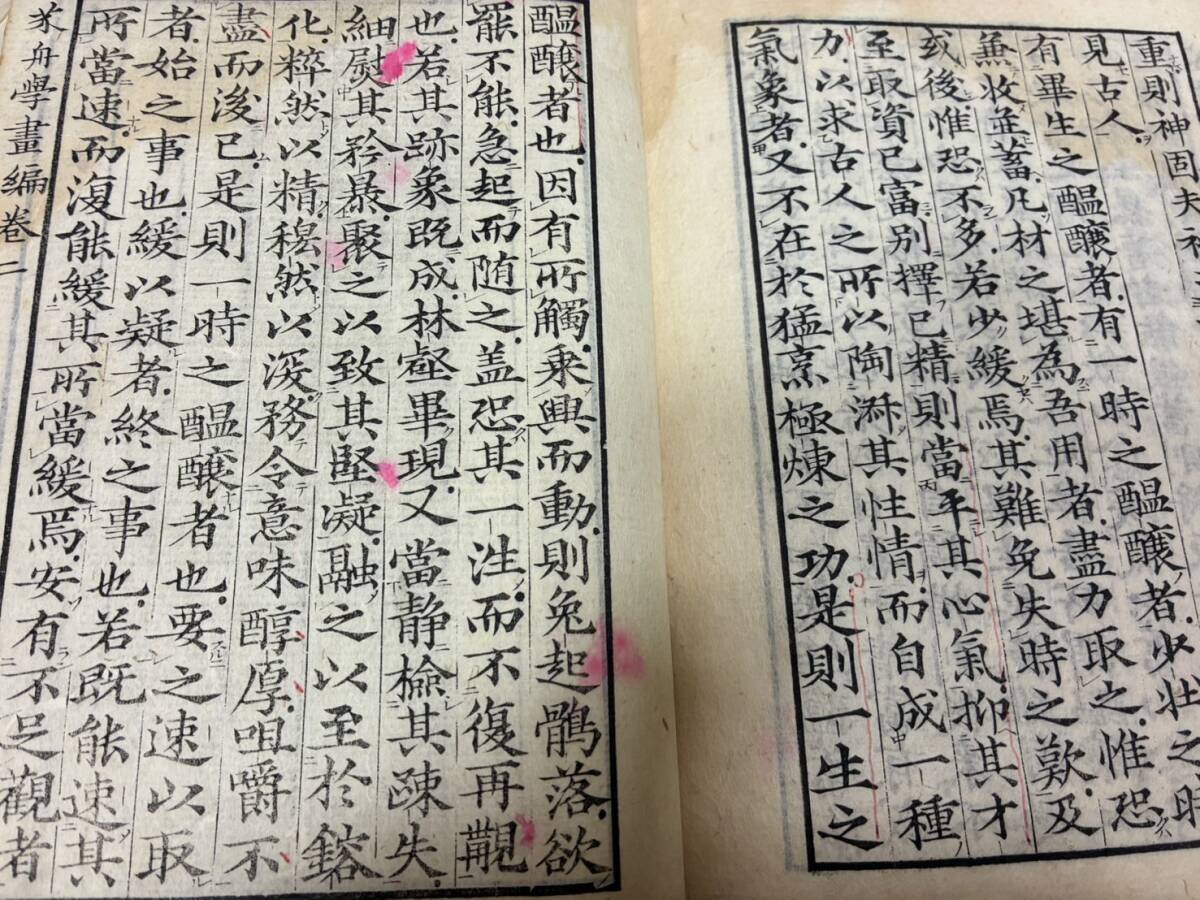 重則神固夫
見古人
有畢生之醞釀者有一時之醞釀者少壯之時
兼收並蓄凡材之堪為吾用者盡力取之惟恐
或後惟恐不多若少緩焉其難免失時之歎及
至取資已富別擇已精則當平其心氣抑其才
力以求古人之所以陶淑其性情而自成一種
氣象者又不在於猛烹極煉之功是則一生之
醞釀者也因有所觸乘興而動則兔起鶻落欲
罷不能急起而随之盖恐其一往而不復再覯
也若其跡象既成林壑畢現又當静檢其疎失
細熨其矜暴聚之以致其堅凝融之以至於鎔
化粹然以精穆然以深務令意味醇厚咀嚼不
盡而後已是則一時之醞釀者也要之速以取
者始之事也緩以凝者終之事也若既能速其
所當速而復能緩其所當緩焉安有不足觀者
芥舟學畫編卷二